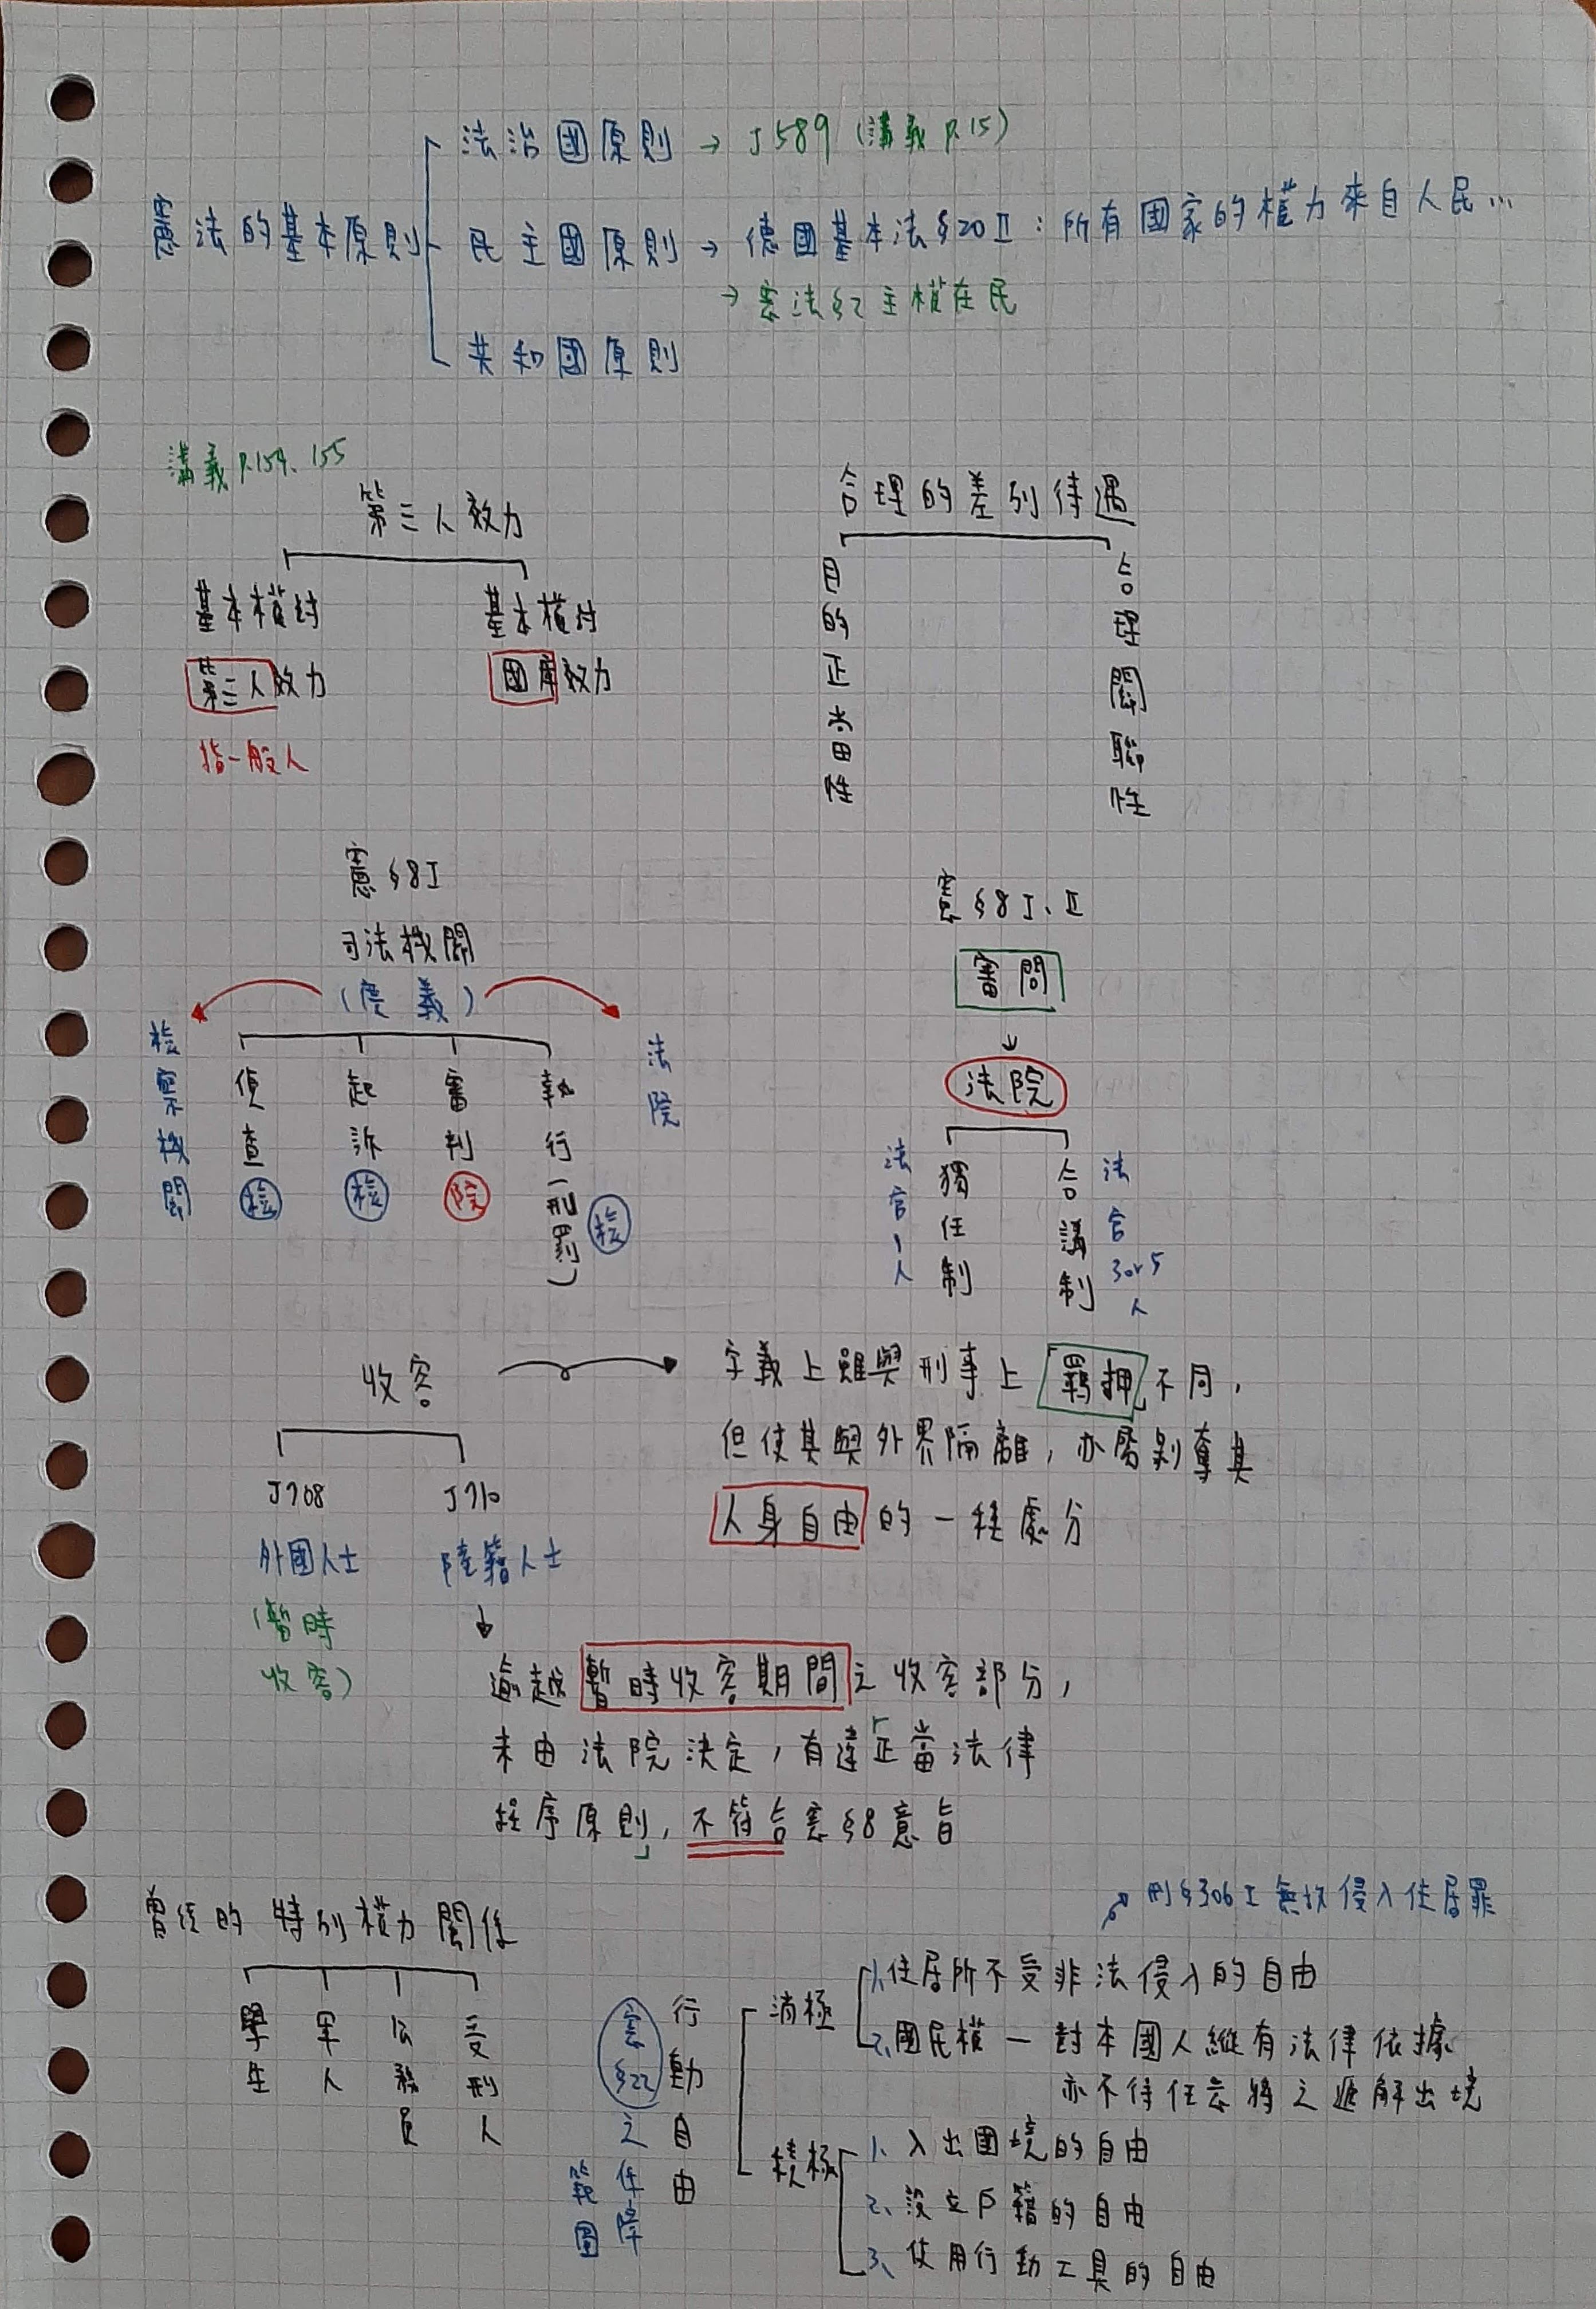 法治國原則 → J589 (講義 P.15)
憲法的基本原則
民主國原則 → 德國基本法§20Ⅱ：所有國家的權力來自人民…
→ 憲法§2 主權在民
共和國原則
講義 P.154、155
第三人效力
基本權對
第三人效力
指一般人
基本權對
國庫效力
合理的差別待遇
目的正當性
合理關聯性
憲§8Ⅰ
司法機關
(廣義)
檢察機關
偵查 檢
起訴 檢
審判 院
執行(刑罰) 檢
法院
憲§8Ⅰ、Ⅱ
審問
↓
法院
法官1人
獨任制
合議制
法官3or5人
收容
字義上雖與刑事上羈押不同，
但使其與外界隔離，亦屬剝奪其
人身自由的一種處分
J708
外國人士
(暫時
收容)
J710
陸籍人士
↓
逾越暫時收容期間之收容部分，
未由法院決定，有違「正當法律
程序原則」，不符合憲§8意旨
曾經的特別權力關係
學生
軍人
公務員
受刑人
刑§306Ⅰ無故侵入住居罪
行動自由
憲§22之保障
範圍
消極
1、住居所不受非法侵入的自由
2、國民權－對本國人縱有法律依據
亦不得任意將之遞解出境
積極
1、入出國境的自由
2、設立戶籍的自由
3、使用行動工具的自由